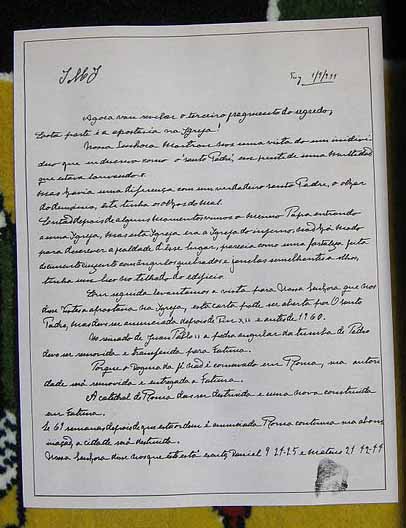 JMJ
Tuy 1/9/944
Agora vou revelar o terceiro fragmento do segredo;
Esta parte é a apostasia na Igreja!
Nossa Senhora mostrou-nos uma vista do um indivi-
duo que eu descrevo como o 'santo Padre', em frente de uma multidão
que estava louvando-o.
Mas havia uma diferença com um verdadeiro santo Padre, o olhar
do demonio, este tinha os olhos do mal.
Então depois de alguns momentos vimos o mesmo Papa entrando
a uma Igreja, mas esta Igreja era a Igreja do inferno, não há modo
para descrever a fealdade desse lugar, parecia como uma fortaleza feita
de cimento cinzento com ângulos quebrados e janelas semelhantes a olhos,
tinha um bico no telhado do edificio.
Em seguida levantamos a vista para Nossa Senhora que nos
disse Vistes a apostasia na Igreja, esta carta pode ser aberta por O santo
Padre, mas deve ser anunciada depois de Pio XII e antes de 1960.
No reinado de Juan Pablo II a pedra angular da tumba de Pedro
deve ser removida e transferida para Fatima.
Porque o dogma da fé não é conservado em Roma, sua autori-
dade será removida e entregada a Fatima.
A catedral de Roma deve ser destruida e uma nova construida
em Fatima.
Se 69 semanas depois de que esta ordem é anunciada Roma continua sua abomi-
nação, a cidade será destruida.
Nossa Senhora disse-nos que isto está escrito, Daniel 9 24-25 e Mateus 21 42-44